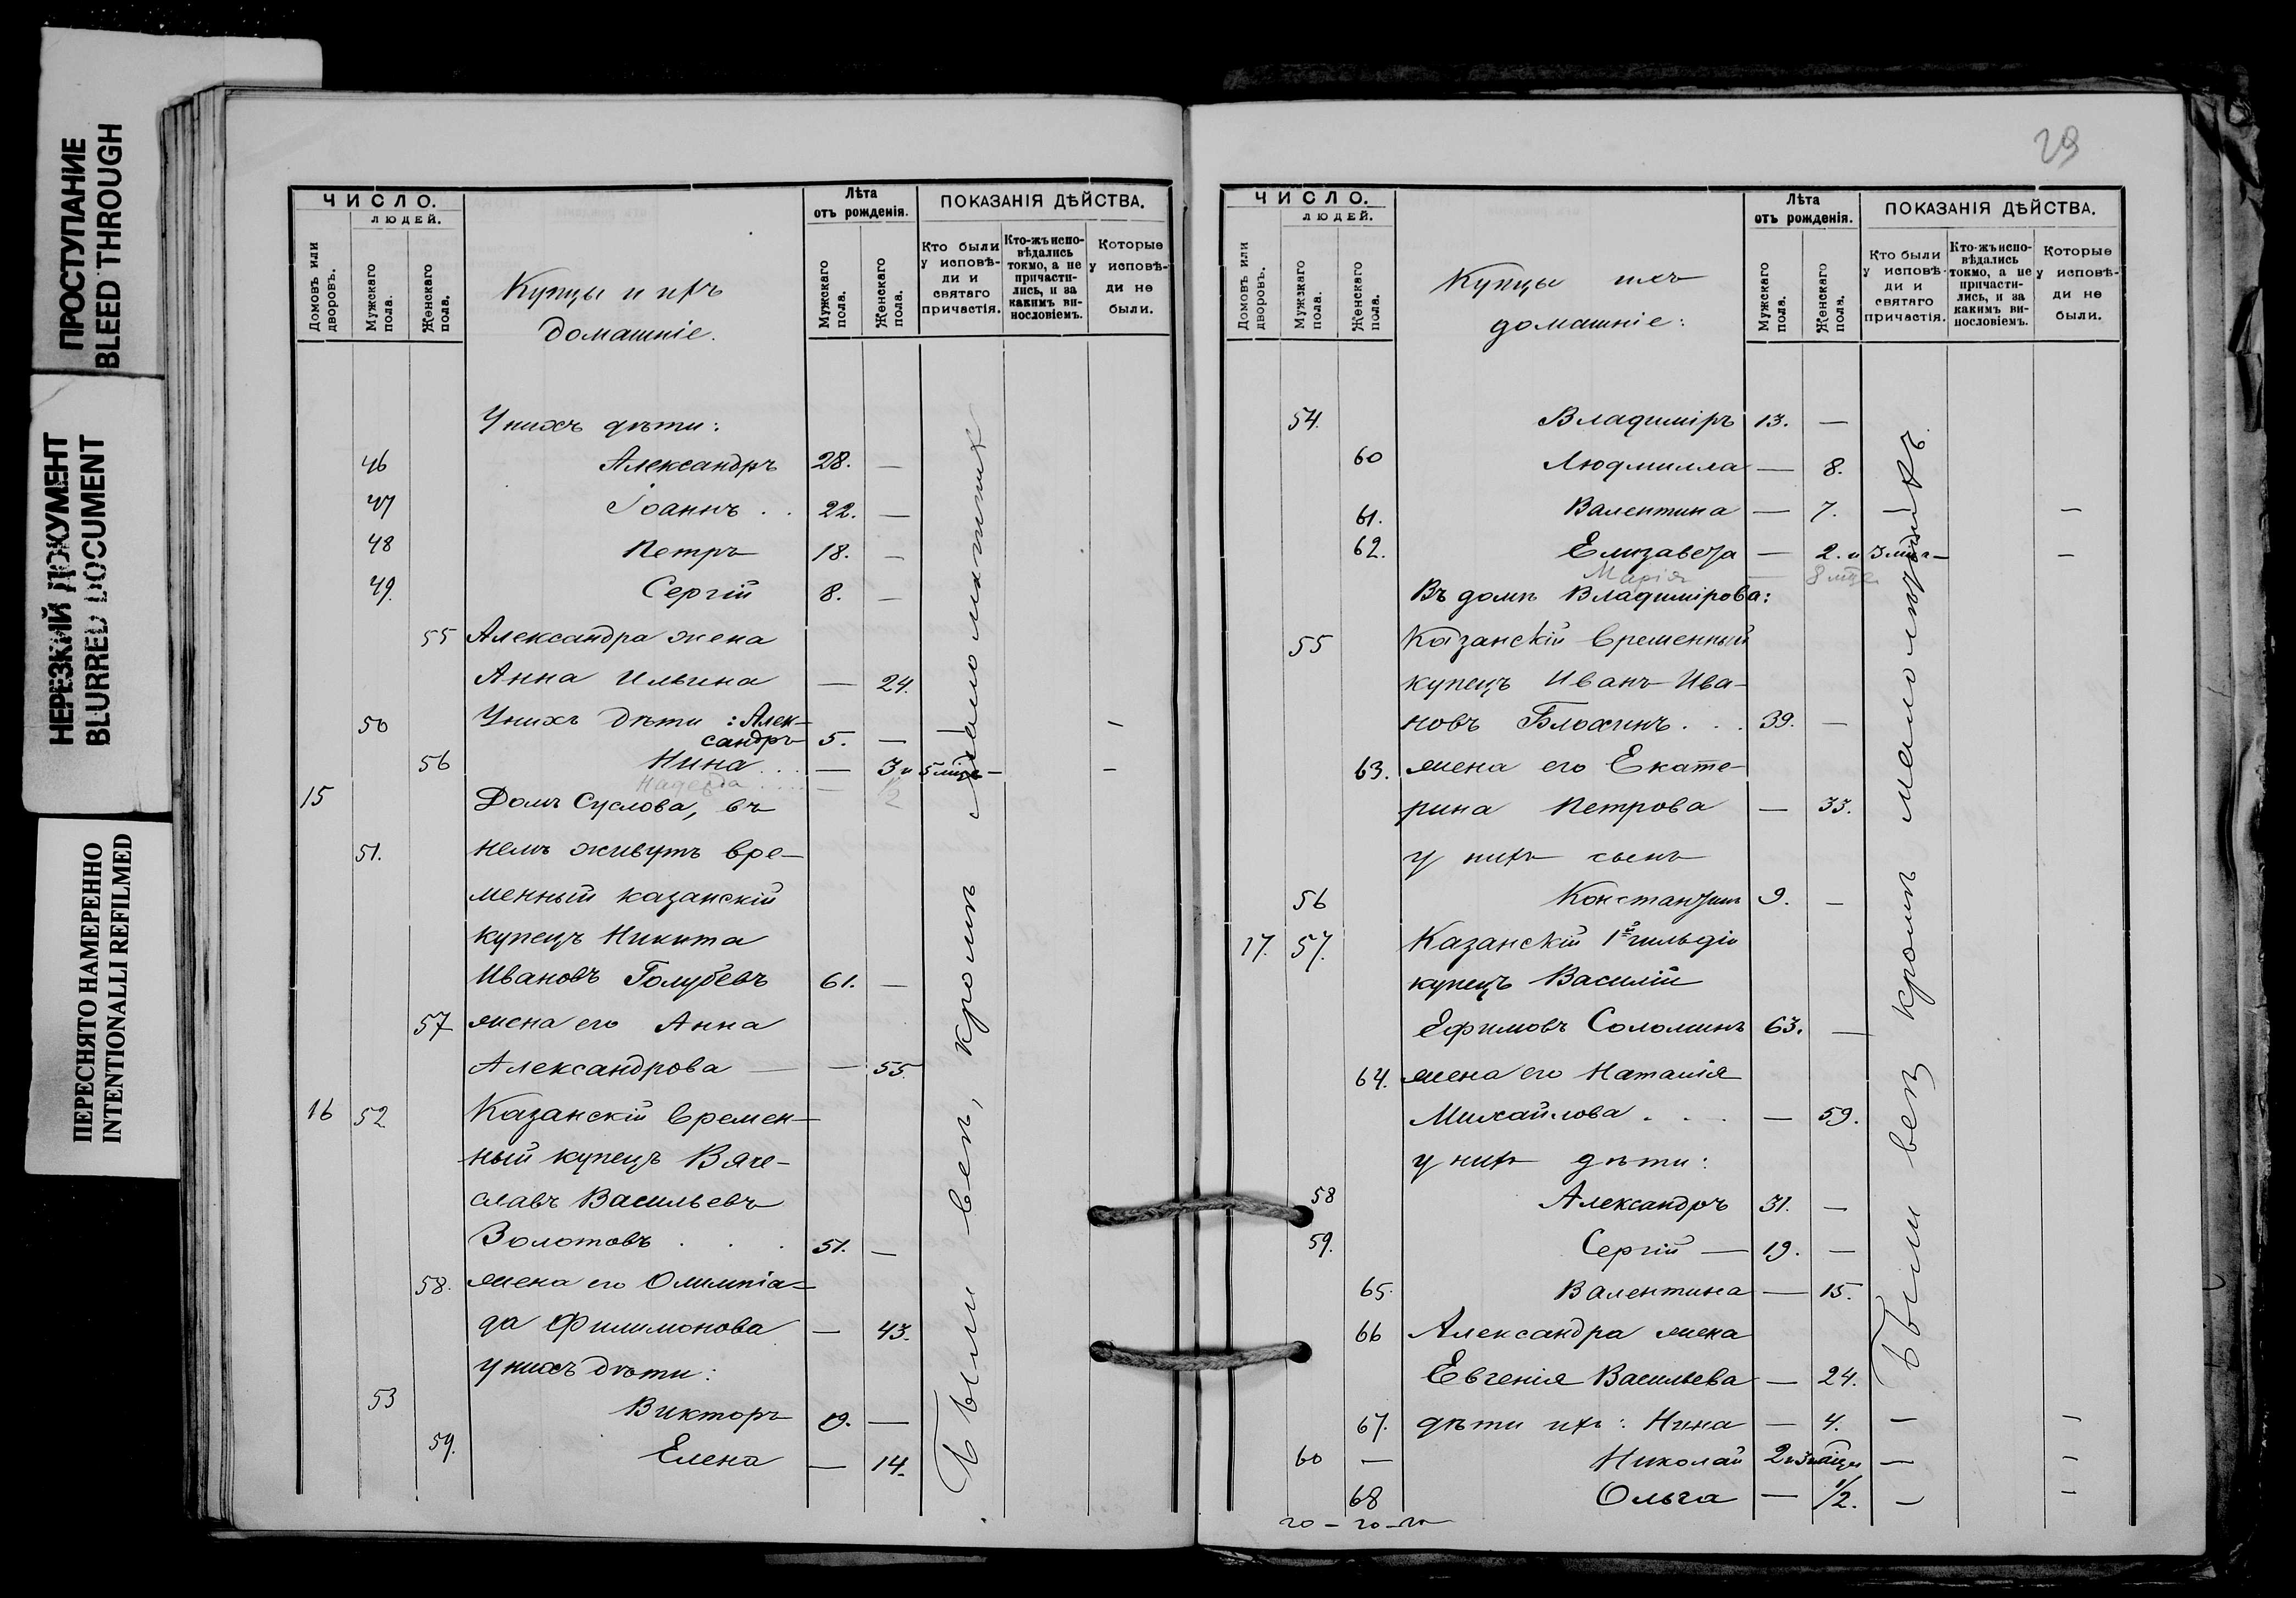 ПРОСТУПАНИЕ
BLEED THROUGH
НЕРЕЗКИЙ ДОКУМЕНТ
BLURRED DOCUMENT
ПЕРЕСНЯТО НАМЕРЕННО
INTENTIONALLI REFILMED
ЧИСЛО.
ЛЮДЕЙ.
Домовъ или дворовъ.
Мужскаго пола.
Женскаго пола.
Купцы и ихъ
домашніе.
Лѣта
отъ рожденія.
Мужскаго пола.
Женскаго пола.
ПОКАЗАНІЯ ДѢЙСТВА.
Кто были
у исповѣ-
ди и
святаго
причастія.
Кто-жъ испо-
вѣдались
токмо, а не
причасти-
лись, и за
какимъ ви-
нословіемъ.
Которые
у исповѣ-
ди не
были.
У нихъ дѣти:
46 Александръ 28. —
47 Іоаннъ . . 22. —
48 Петръ 18. —
49. Сергій 8. —
55 Александра жена
Анна Ильина — 24.
50 У нихъ дѣти: Алек-
сандръ 5. — — —
56 Нина . . . — 3 и 5 мѣс. — —
Надежда . . . . — 1/2
15 Домъ Суслова, въ
51. немъ живутъ вре-
менный казанскій
купецъ Никита
Ивановъ Голубевъ 61. —
57 жена его Анна
Александрова — — 55.
16 52 Казанскій времен-
ный купецъ Вяче-
славъ Васильевъ
Золотовъ . . . 51. —
58. жена его Олимпіа-
да Филимонова — 43.
у нихъ дѣти:
53 Викторъ 19. —
59. Елена — 14.
Были всѣ, кромѣ малолѣтнихъ
29
ЧИСЛО.
ЛЮДЕЙ.
Домовъ или дворовъ.
Мужскаго пола.
Женскаго пола.
Купцы ихъ
домашніе:
Лѣта
отъ рожденія.
Мужскаго пола.
Женскаго пола.
ПОКАЗАНІЯ ДѢЙСТВА.
Кто были
у исповѣ-
ди и
святаго
причастія.
Кто-жъ испо-
вѣдались
токмо, а не
причасти-
лись, и за
какимъ ви-
нословіемъ.
Которые
у исповѣ-
ди не
были.
54. Владиміръ 13. —
60 Людмилла — 8.
61. Валентина — 7. — —
62. Елизавета — 2. и 3 мѣс. — —
Марія — 8 мѣс.
Въ домѣ Владимірова:
55 Казанскій временный
купецъ Иванъ Ива-
новъ Блохинъ . . . 39. —
63. жена его Екате-
рина Петрова — 33.
у нихъ сынъ
56 Константинъ 9. —
17. 57. Казанскій 1й гильдіи
купецъ Василій
Ефимовъ Соломинъ 63. —
64. жена его Наталія
Михайлова . . . — 59.
у нихъ дѣти:
58 Александръ 31. —
59. Сергій — 19. —
65. Валентина — 15.
66 Александра жена
Евгенія Васильева — 24.
67. дѣти ихъ: Нина — 4. — —
60 — Николай 2 и 3 мѣсяц. — —
68 Ольга — 1/2. — —
Были всѣ кромѣ малолѣтнихъ